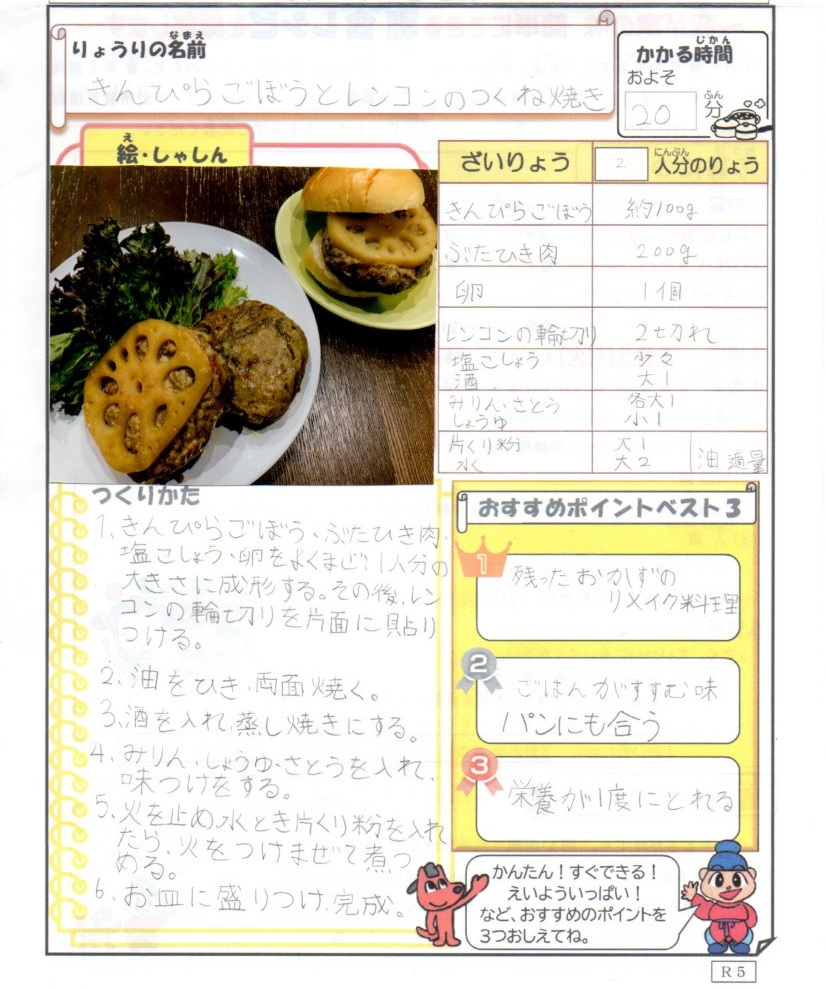 りょうりの名前
なまえ
きんぴらごぼうとレンコンのつくね焼き
かかる時間
じかん
およそ
20 分
ぷん
絵・しゃしん
え
ざいりょう 2 人分のりょう
にんぶん
きんぴらごぼう 約100g
ぶたひき肉 200g
卵 1個
レンコンの輪切り 2切れ
塩こしょう 少々
酒 大1
みりん、さとう 各大1
しょうゆ 小1
片くり粉 大1
水 大2 油 適量
つくりかた
1、きんぴらごぼう、ぶたひき肉、
塩こしょう、卵をよくまぜ、1人分の
大きさに成形する。その後、レン
コンの輪切りを片面に貼り
つける。
2、油をひき、両面焼く。
3、酒を入れ、蒸し焼きにする。
4、みりん、しょうゆ、さとうを入れ、
味つけをする。
5、火を止め、水とき片くり粉を入れ
たら、火をつけまぜて煮つ
める。
6、お皿に盛りつけ、完成。
おすすめポイントベスト3
1
残ったおかずの
リメイク料理
2
ごはんがすすむ味
パンにも合う
3
栄養が1度にとれる
かんたん！すぐできる！
えいよういっぱい！
など、おすすめのポイントを
3つおしえてね。
R5